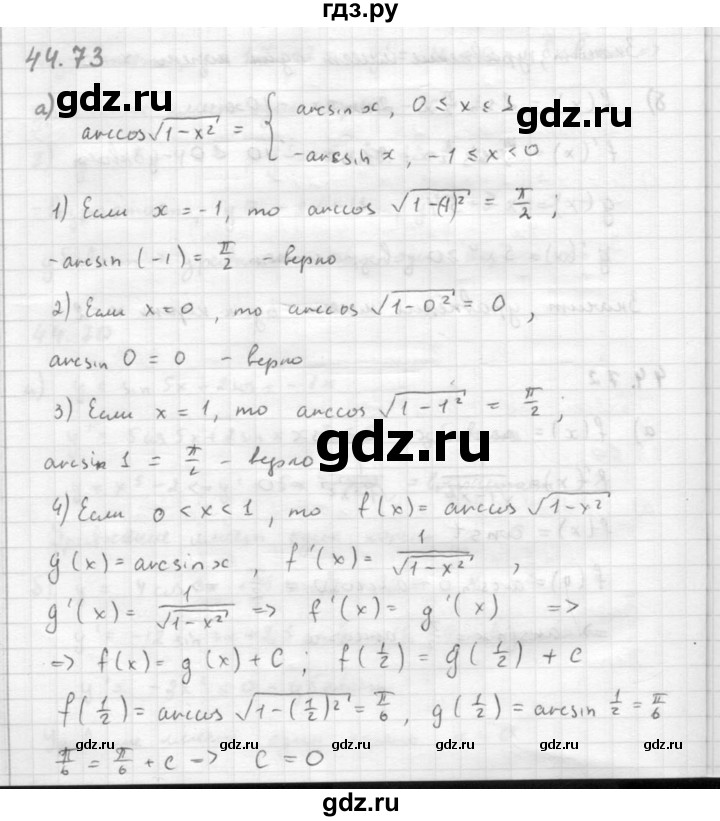 гдз.ру
44.73
а) arccos √(1-x²) = { arcsin x, 0 ≤ x ≤ 1
-arcsin x, -1 ≤ x < 0
1) Если x = -1, то arccos √(1-(-1)²) = π/2 ;
-arcsin (-1) = π/2 - верно
2) Если x = 0, то arccos √(1-0²) = 0 ,
arcsin 0 = 0 - верно
3) Если x = 1, то arccos √(1-1²) = π/2 ;
arcsin 1 = π/2 - верно
4) Если 0 < x < 1, то f(x) = arccos √(1-x²)
g(x) = arcsin x , f'(x) = 1/√(1-x²) ,
g'(x) = 1/√(1-x²) => f'(x) = g'(x) =>
=> f(x) = g(x) + C ; f(1/2) = g(1/2) + C
f(1/2) = arccos √(1-(1/2)²) = π/6 , g(1/2) = arcsin 1/2 = π/6
gdz.ru gdz.ru gdz.ru
π/6 = π/6 + C => C = 0
gdz.ru